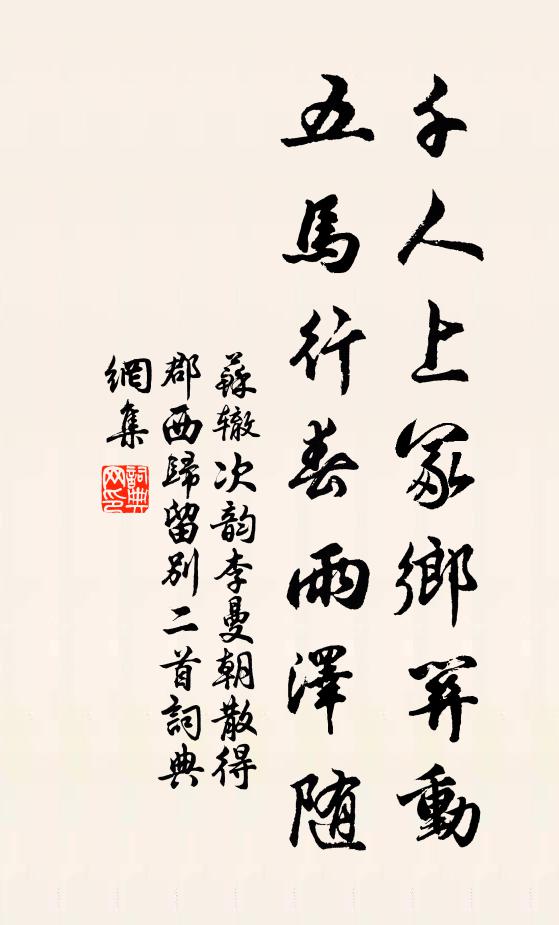 千人上冢鄉閭動
五馬行春雨澤隨
蘇辙次韵李曼朝散得
郡西歸留别二首詞典
網集
詞典
网印